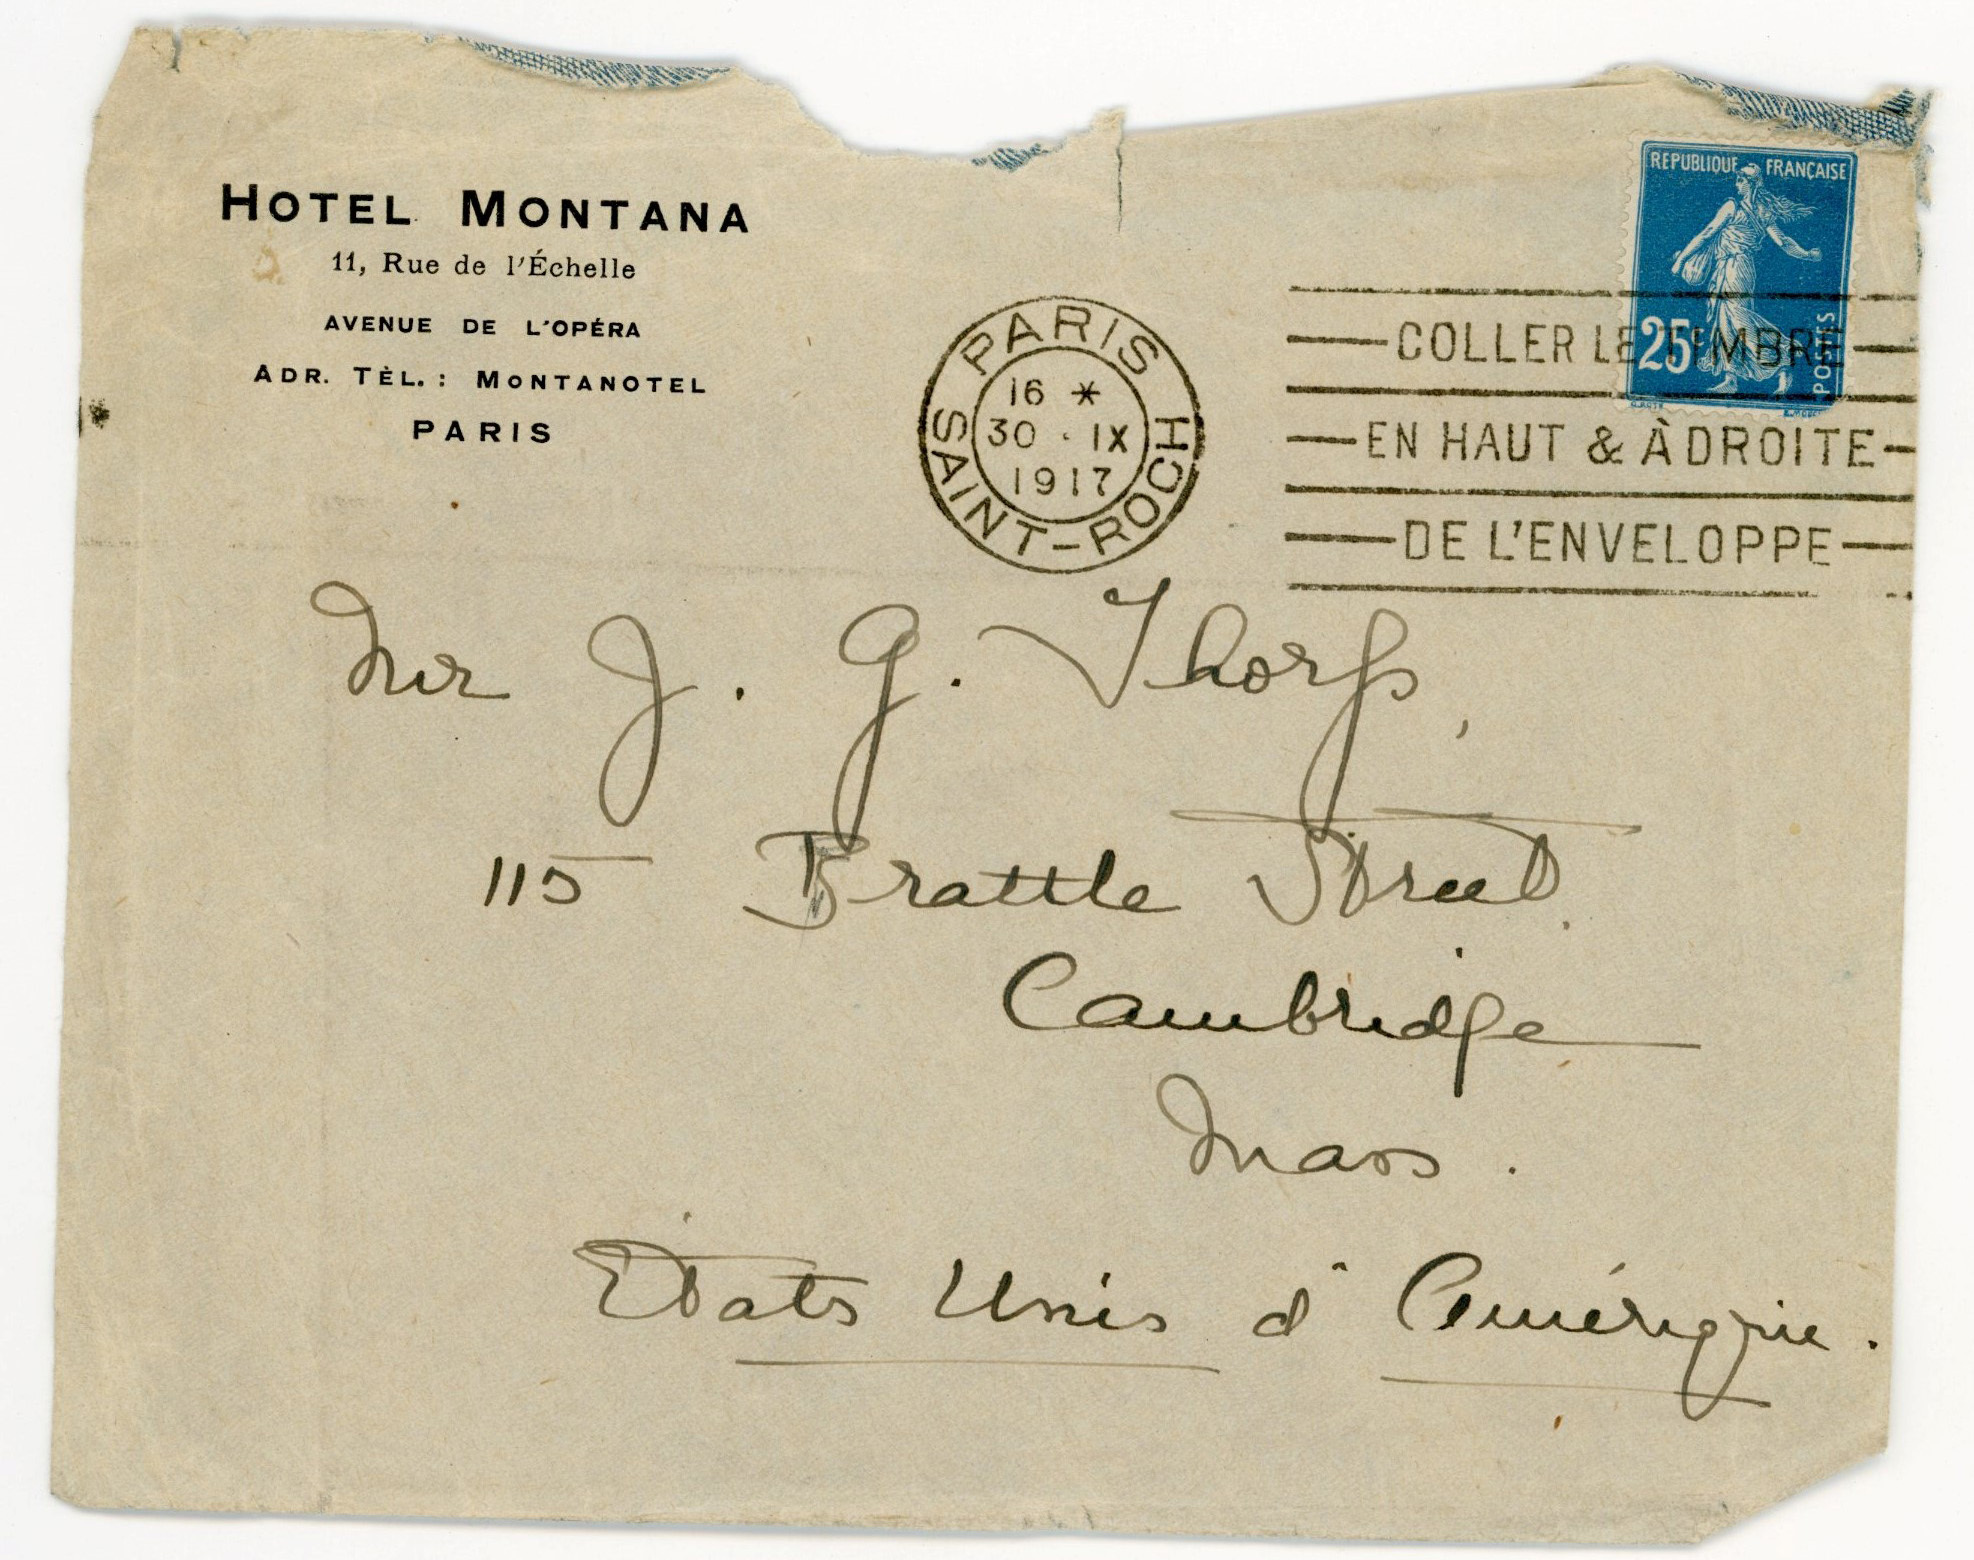 HOTEL MONTANA
11, Rue de l'Échelle
AVENUE DE L'OPÉRA
ADR. TÈL. : MONTANOTEL
PARIS
REPUBLIQUE FRANÇAISE
25c
POSTES
PARIS
16 *
30 · IX
1917
SAINT-ROCH
COLLER LE TIMBRE
EN HAUT & À DROITE
DE L'ENVELOPPE
Mr J. G. Thorp,
115 Brattle Street.
Cambridge
Mass.
Etats Unis d' Amérique.